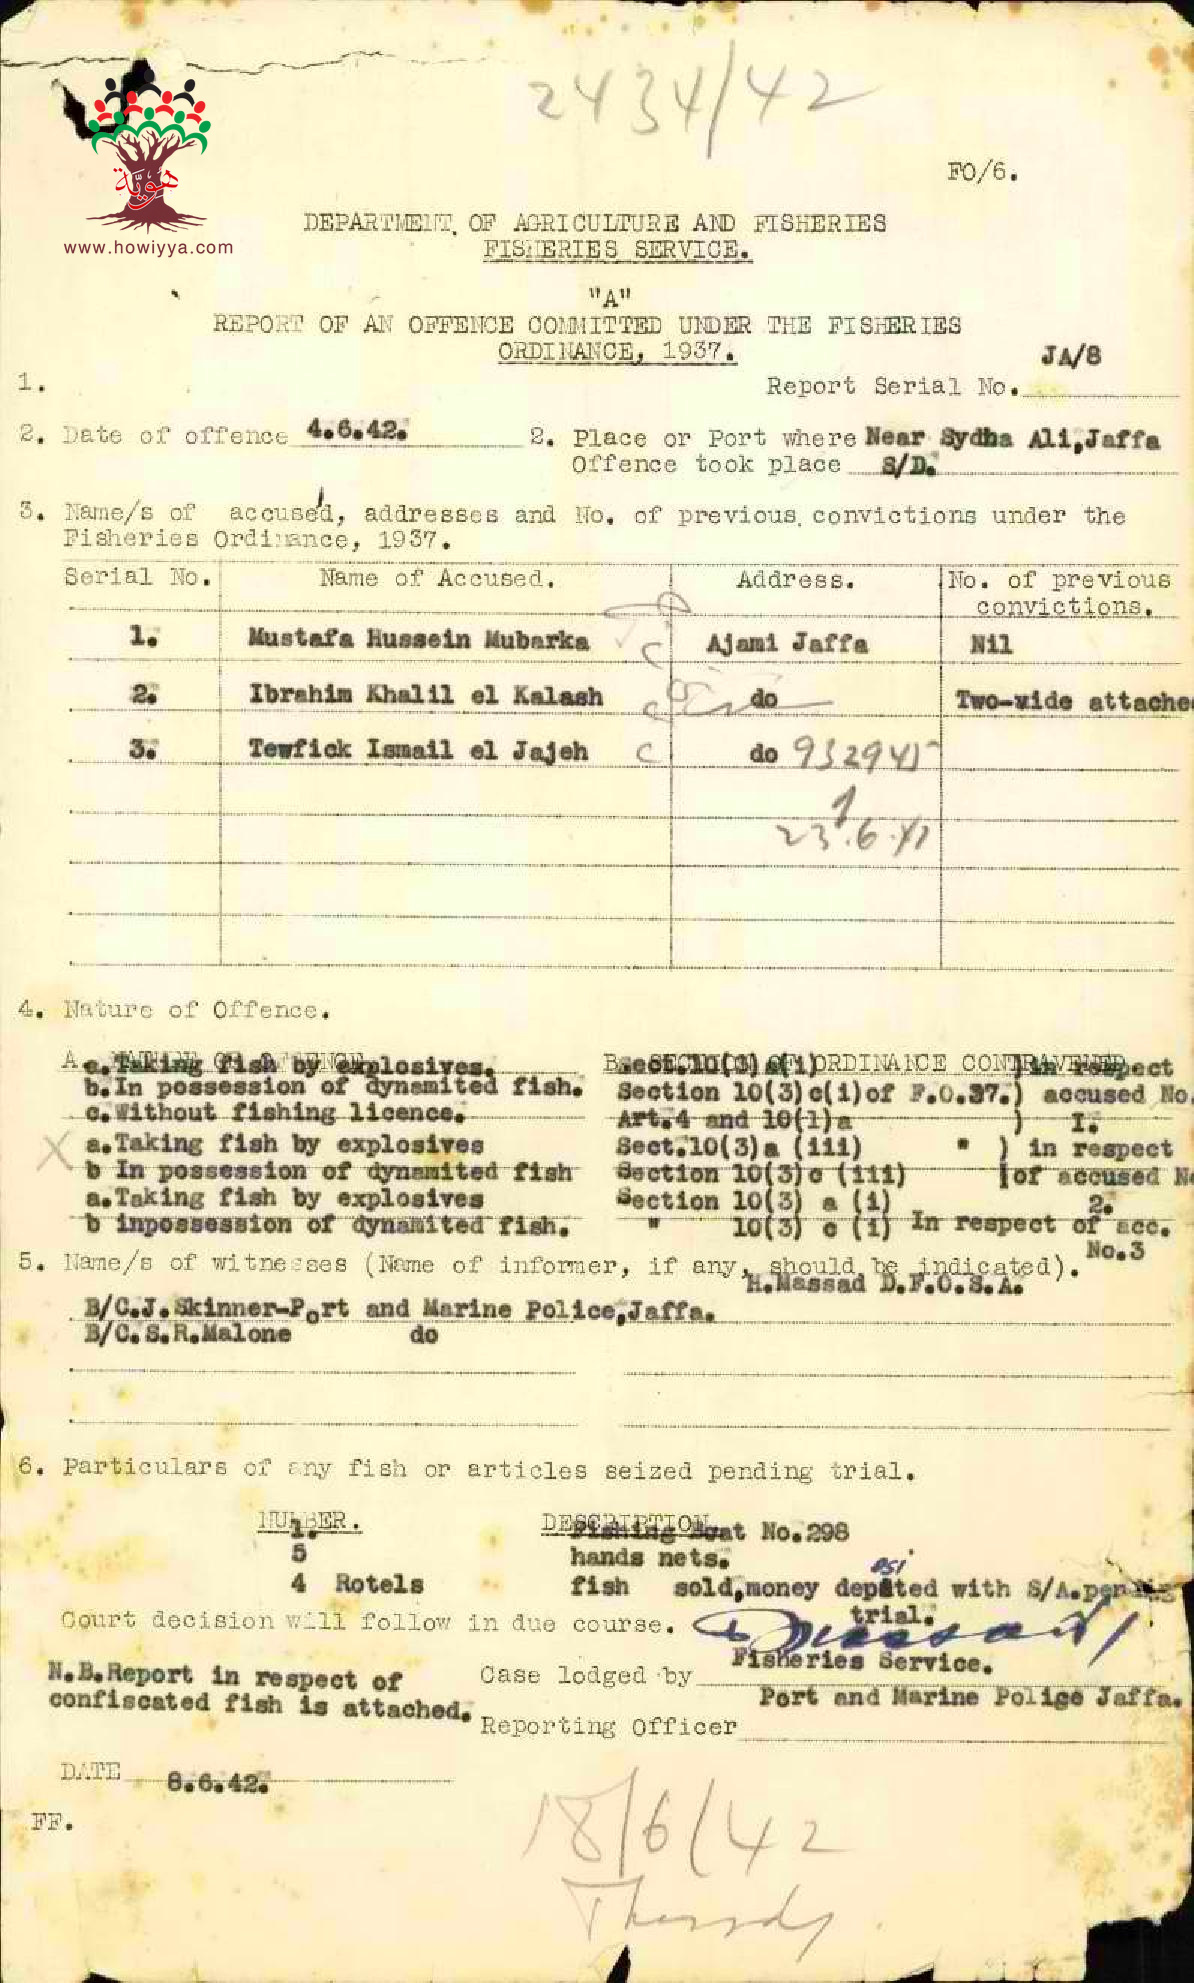 2434/42
هويّة
www.howiyya.com
FO/6.
DEPARTMENT. OF AGRICULTURE AND FISHERIES
FISHERIES SERVICE.
"A"
REPORT OF AN OFFENCE COMMITTED UNDER THE FISHERIES
ORDINANCE, 1937.
JA/8
1. Report Serial No.
2. Date of offence 4.6.42. 2. Place or Port where Near Sydha Ali,Jaffa
Offence took place S/D.
3. Name/s of accused, addresses and No. of previous convictions under the
Fisheries Ordinance, 1937.
Serial No. Name of Accused. Address. No. of previous
convictions.
1. Mustafa Hussein Mubarka C Ajami Jaffa Nil
2. Ibrahim Khalil el Kalash C do Two-vide attached
3. Tewfick Ismail el Jajeh C do 932945
23.6.41
4. Nature of Offence.
A. NATURE OF OFFENCE B. SECTION OF ORDINANCE CONTRAVENED
a.Taking fish by explosives. Sect.10(3) a(i) )in respect
b.In possession of dynamited fish. Section 10(3)c(i)of F.O.37.) accused No.
c.Without fishing licence. Art.4 and 10(1)a ) I.
X a.Taking fish by explosives Sect.10(3)a (iii) " ) in respect
b In possession of dynamited fish Section 10(3)c (iii) )of accused No
a.Taking fish by explosives Section 10(3) a (i) 2.
b inpossession of dynamited fish. " 10(3) c (i) In respect of acc.
No.3
5. Name/s of witnesses (Name of informer, if any, should be indicated).
H.Massad D.F.O.S.A.
B/C.J.Skinner-Port and Marine Police,Jaffa.
B/C.S.R.Malone do
6. Particulars of any fish or articles seized pending trial.
NUMBER. DESCRIPTION
1. Fishing Boat No.298
5 hands nets.
osi
4 Rotels fish sold,money depated with S/A.per
trial.
Court decision will follow in due course.
Fisheries Service.
N.B.Report in respect of Case lodged by
confiscated fish is attached. Port and Marine Police Jaffa.
Reporting Officer
DATE 8.6.42.
FF.
18/6/42
Thursdy